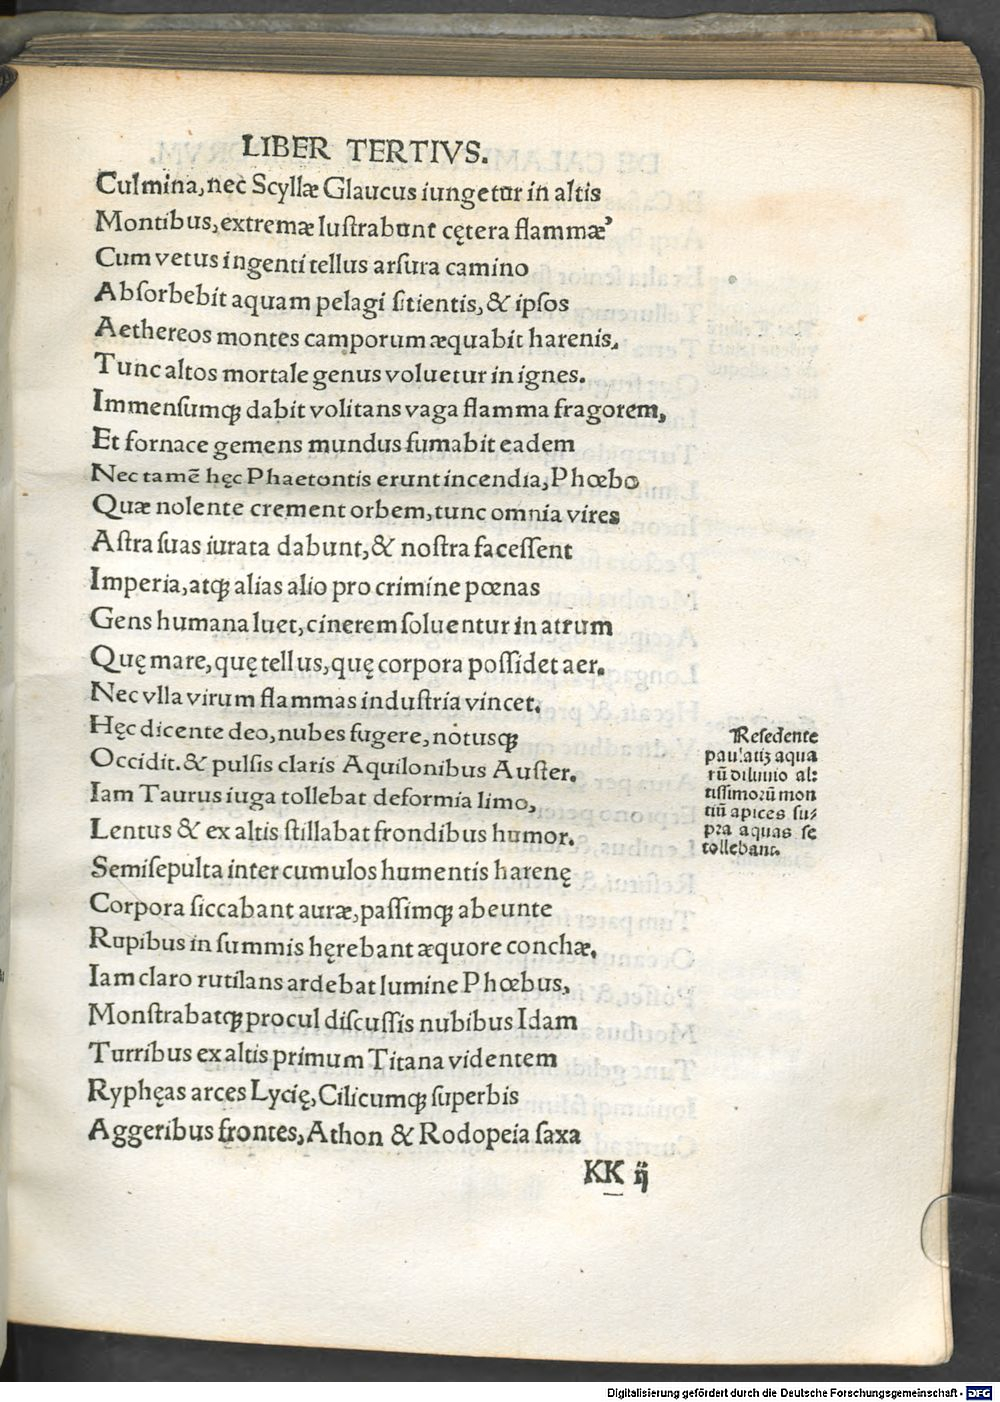 LIBER TERTIVS.
Culmina, nec Scyllæ Glaucus iungetur in altis
Montibus, extremæ luſtrabunt cętera flammæ
Cum vetus ingenti tellus arſura camino
Abſorbebit aquam pelagi ſitientis, & ipſos
Aethereos montes camporum æquabit harenis.
Tunc altos mortale genus voluetur in ignes.
Immenſumqꝫ dabit volitans vaga flamma fragorem,
Et fornace gemens mundus fumabit eadem
Nec tamē hęc Phaetontis erunt incendia, Phœbo
Quæ nolente crement orbem, tunc omnia vires
Aſtra ſuas iurata dabunt, & noſtra faceſſent
Imperia, atqꝫ alias alio pro crimine pœnas
Gens humana luet, cinerem ſoluentur in atrum
Quę mare, quę tellus, quę corpora poſſidet aer.
Nec vlla virum flammas induſtria vincet.
Hęc dicente deo, nubes fugere, notusqꝫ
Occidit. & pulſis claris Aquilonibus Auſter.
Iam Taurus iuga tollebat deformia limo,
Lentus & ex altis ſtillabat frondibus humor.
Semiſepulta inter cumulos humentis harenę
Corpora ſiccabant auræ, paſſimqꝫ abeunte
Rupibus in ſummis hęrebant æquore conchæ.
Iam claro rutilans ardebat lumine Phœbus,
Monſtrabatqꝫ procul diſcuſſis nubibus Idam
Turribus ex altis primum Titana videntem
Ryphęas arces Lycię, Cilicumqꝫ ſuperbis
Aggeribus frontes, Athon & Rodopeia ſaxa
KK ij
Reſedente
paulatiꝫ aqua
rū diluuio al⸗
tiſſimoꝛū mon
tiū apices ſu⸗
pꝛa aquas ſe
tollebant.
Digitalisierung gefördert durch die Deutsche Forschungsgemeinschaft - DFG